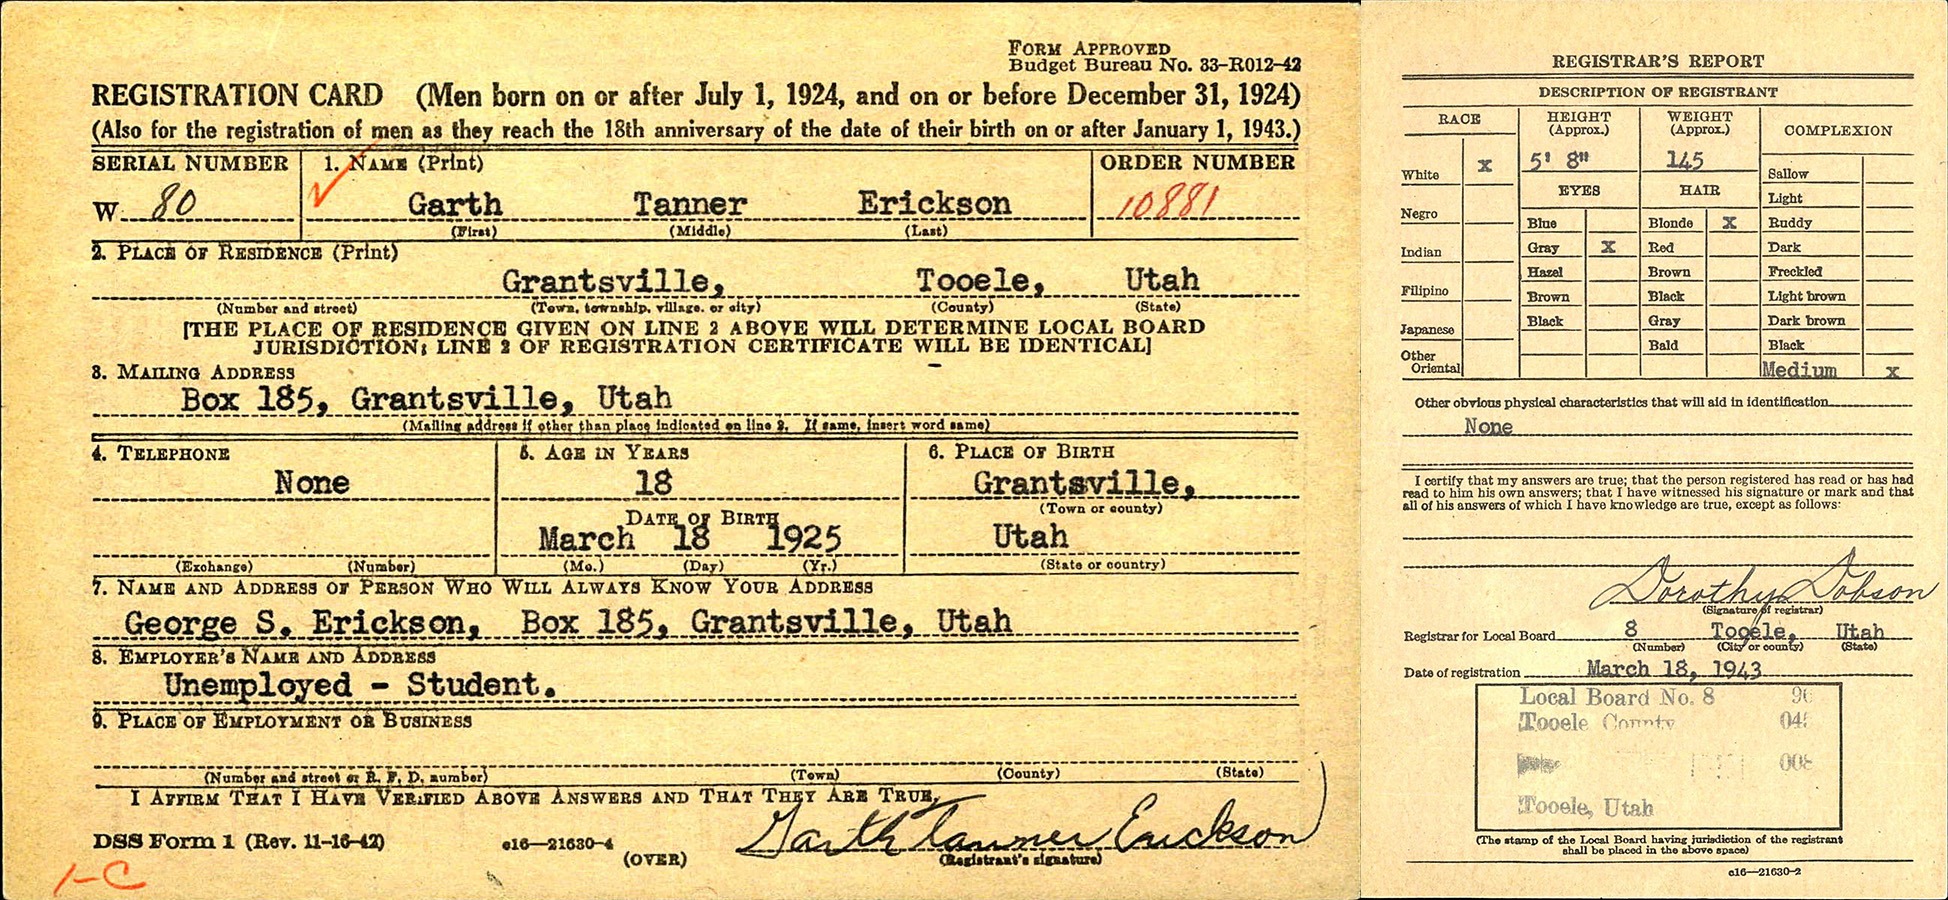 FORM APPROVED
Budget Bureau No. 33-R012-42
REGISTRATION CARD (Men born on or after July 1, 1924, and on or before December 31, 1924)
(Also for the registration of men as they reach the 18th anniversary of the date of their birth on or after January 1, 1943.)
SERIAL NUMBER 1. NAME (Print) ORDER NUMBER
W 80 Garth Tanner Erickson 10881
(First) (Middle) (Last)
2. PLACE OF RESIDENCE (Print)
Grantsville, Tooele, Utah
(Number and street) (Town, township, village, or city) (County) (State)
[THE PLACE OF RESIDENCE GIVEN ON LINE 2 ABOVE WILL DETERMINE LOCAL BOARD
JURISDICTION; LINE 2 OF REGISTRATION CERTIFICATE WILL BE IDENTICAL]
3. MAILING ADDRESS
Box 185, Grantsville, Utah
(Mailing address if other than place indicated on line 2. If same, insert word same)
4. TELEPHONE 5. AGE IN YEARS 6. PLACE OF BIRTH
None 18 Grantsville,
(Town or county)
DATE OF BIRTH
March 18 1925 Utah
(Exchange) (Number) (Mo.) (Day) (Yr.) (State or country)
7. NAME AND ADDRESS OF PERSON WHO WILL ALWAYS KNOW YOUR ADDRESS
George S. Erickson, Box 185, Grantsville, Utah
8. EMPLOYER'S NAME AND ADDRESS
Unemployed - Student.
9. PLACE OF EMPLOYMENT OR BUSINESS
(Number and street or R. F. D. number) (Town) (County) (State)
I AFFIRM THAT I HAVE VERIFIED ABOVE ANSWERS AND THAT THEY ARE TRUE.
Garth Tanner Erickson
DSS Form 1 (Rev. 11-16-42) c16—21630-4 (OVER) (Registrant's signature)
1-C
REGISTRAR'S REPORT
DESCRIPTION OF REGISTRANT
RACE HEIGHT (Approx.) WEIGHT (Approx.) COMPLEXION
White x 5' 8" 145 Sallow
EYES HAIR Light
Negro Blue Blonde x Ruddy
Indian Gray x Red Dark
Hazel Brown Freckled
Filipino Brown Black Light brown
Japanese Black Gray Dark brown
Other Oriental Bald Black
Medium x
Other obvious physical characteristics that will aid in identification
None
I certify that my answers are true; that the person registered has read or has had
read to him his own answers; that I have witnessed his signature or mark and that
all of his answers of which I have knowledge are true, except as follows:
Dorothy Dobson
(Signature of registrar)
Registrar for Local Board 8 Tooele, Utah
(Number) (City or county) (State)
Date of registration March 18, 1943
Local Board No. 8
Tooele County
Tooele, Utah
(The stamp of the Local Board having jurisdiction of the registrant
shall be placed in the above space)
c16—21630-2